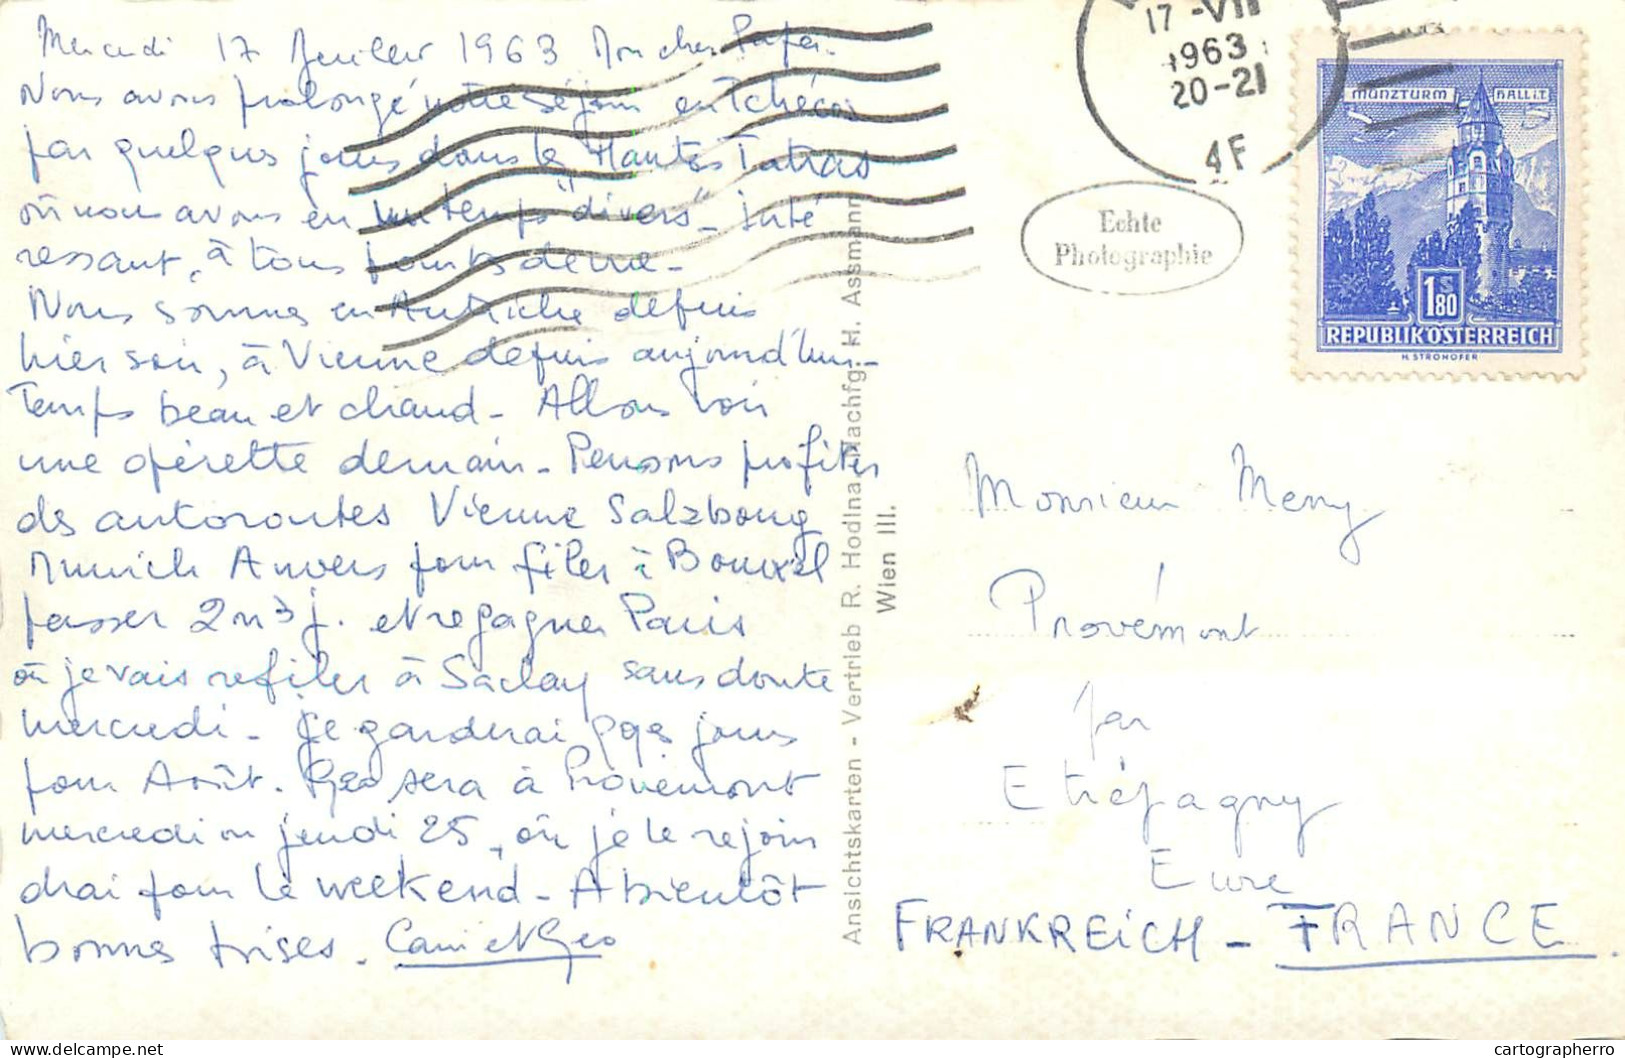 Mercredi 17 Juillet 1963 Mon cher Papa.
Nous avons prolongé notre séjour en Tchéco
par quelques jours dans les Hautes Tatras
où nous avons eu un temps "divers" - inté
ressant, à tous points de vue -
Nous sommes en Autriche depuis
hier soir, à Vienne depuis aujourd'hui -
Temps beau et chaud - Allons voir
une opérette demain - Pensons profiter
des autoroutes Vienne Salzbourg
Munich Anvers pour filer à
passer 2 3 j. et regagner Paris
où je vais refiler à Saclay sans doute
mercredi - Je garderai qqes jours
pour Août. Géo sera à Provemont
mercredi ou jeudi 25, où je le rejoin
drai pour le week end - A bientôt
bonnes bises. Cami et Géo
17 -VII
1963
20-21
4F
MÜNZTURM HALL i.T.
1 S 80
REPUBLIK ÖSTERREICH
H. STROHOFER
Echte
Photographie
Ansichtskarten - Vertrieb R. Hodina, Nachfg. H. Assmann
Wien III.
Monsieur Meny
Provémont
par
Etrépagny
Eure
FRANKREICH - FRANCE
cartographerro